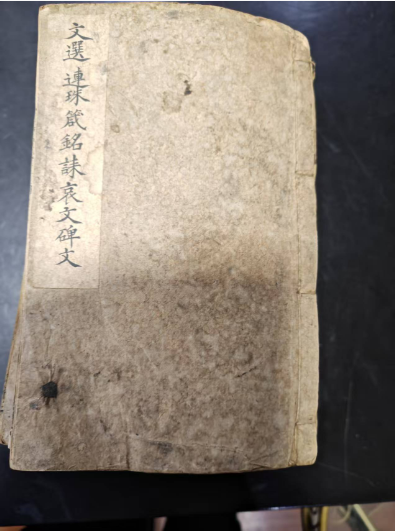 文選 連珠箴銘誄哀文碑文